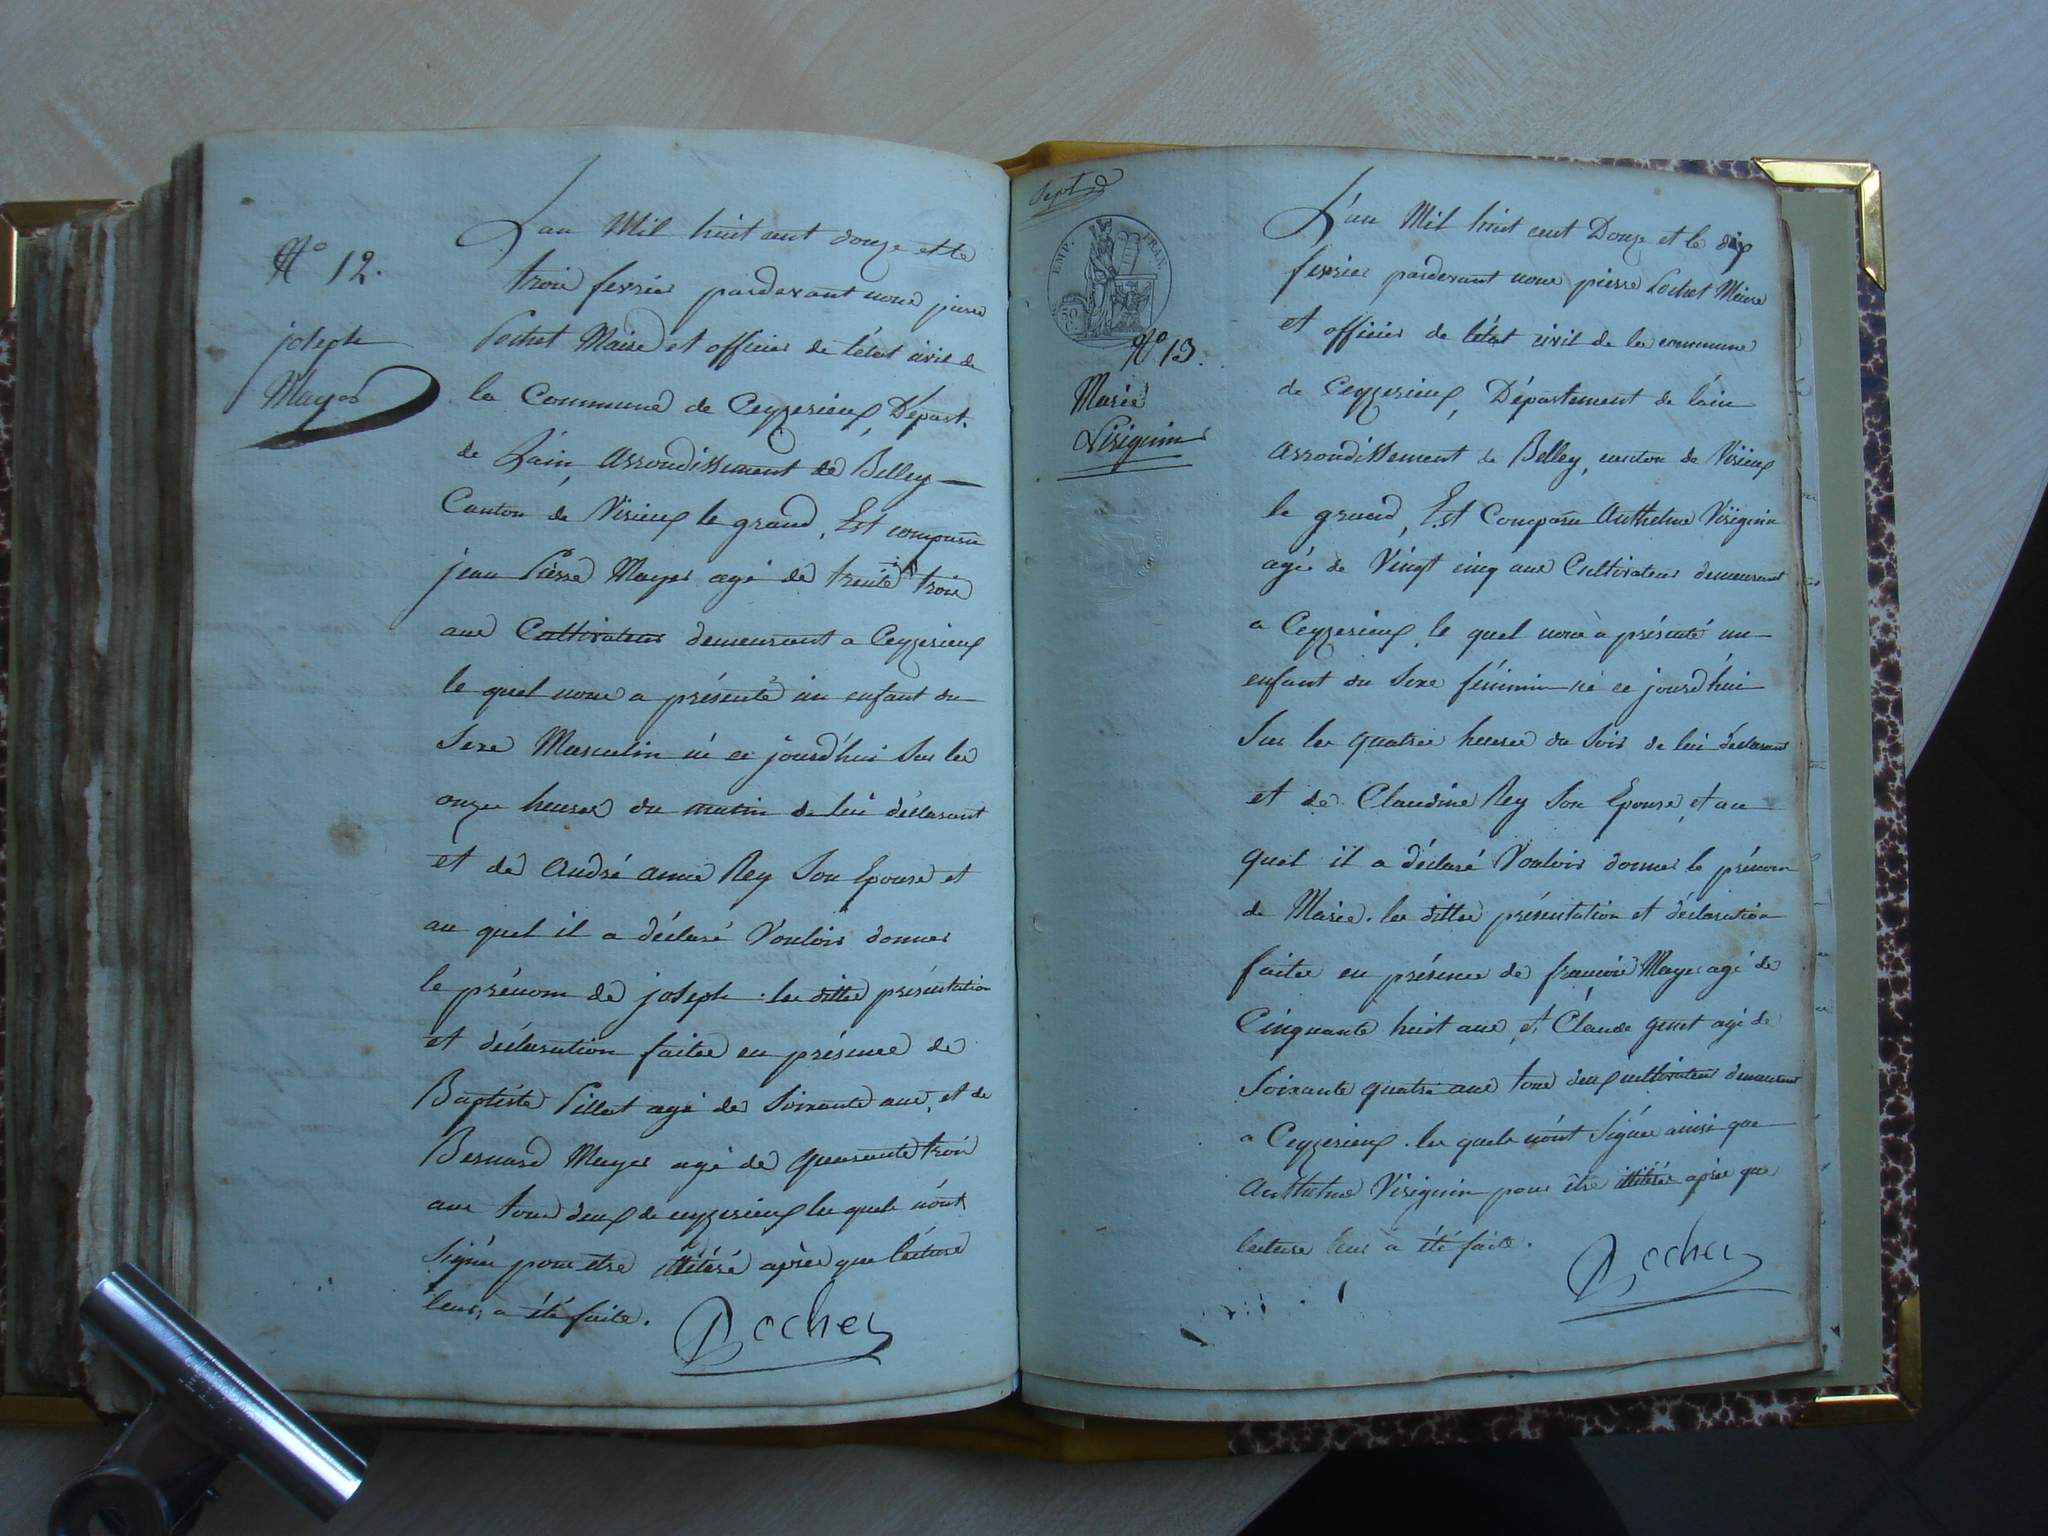 N° 12.
joseph
Mayer
L'an Mil huit cent douze et le
trois fevrier pardevant nous pierre
Pochet Maire et officier de l'état civil de
la Commune de Ceyzerieux, Départ.
de L'ain, Arrondissement de Belley
Canton de Virieux le grand, Est comparu
jean Pierre Mayer agé de trente trois
ans Cultivateur demeurant a Ceyzerieux
le quel nous a présenté un enfant du
Sexe Masculin né ce jourd'hui Sur les
onze heures du matin de lui déclarant
et de André anne Rey Son Epouse et
au quel il a déclaré Vouloir donner
le prénom de joseph. les dittes présentation
et déclaration faites en présence de
Baptiste Pillet agé de Soixante ans, et de
Bernard Mayer agé de quarante trois
ans tous deux de ceyzerieux les quels n'ont
Signés pour etre illitéré après que lécture
leurs a été faite.
Pochet
Sept
EMP. FRAN
50 C.
N° 13.
Marie
Viriguin
L'an Mil huit cent Douze et le dix
fevrier pardevant nous pierre Pochet Maire
et officier de l'état civil de la commune
de Ceyzerieux, Département de l'ain
Arrondissement de Belley, canton de Virieux
le grand, Est Comparu Anthelme Viriguin
agé de Vingt cinq ans Cultivateur demeurant
a Ceyzerieux, le quel nous à présenté un
enfant du Sexe féminin né ce jourd'hui
Sur les quatres heures du Soir de lui déclarant
et de Claudine Rey Son Epouse, et au
quel il a déclaré Vouloir donner le prénom
de Marie. les dittes présentation et déclaration
faites en présence de francois Mayer agé de
Cinquante huit ans, et Claude genet agé de
Soixante quatre ans tous deux cultivateurs demeurant
a Ceyzerieux. les quels n'ont Signés ainsi que
Anthelme Viriguin pour être illitérés après que
lecture leur à été faite.
Pochet